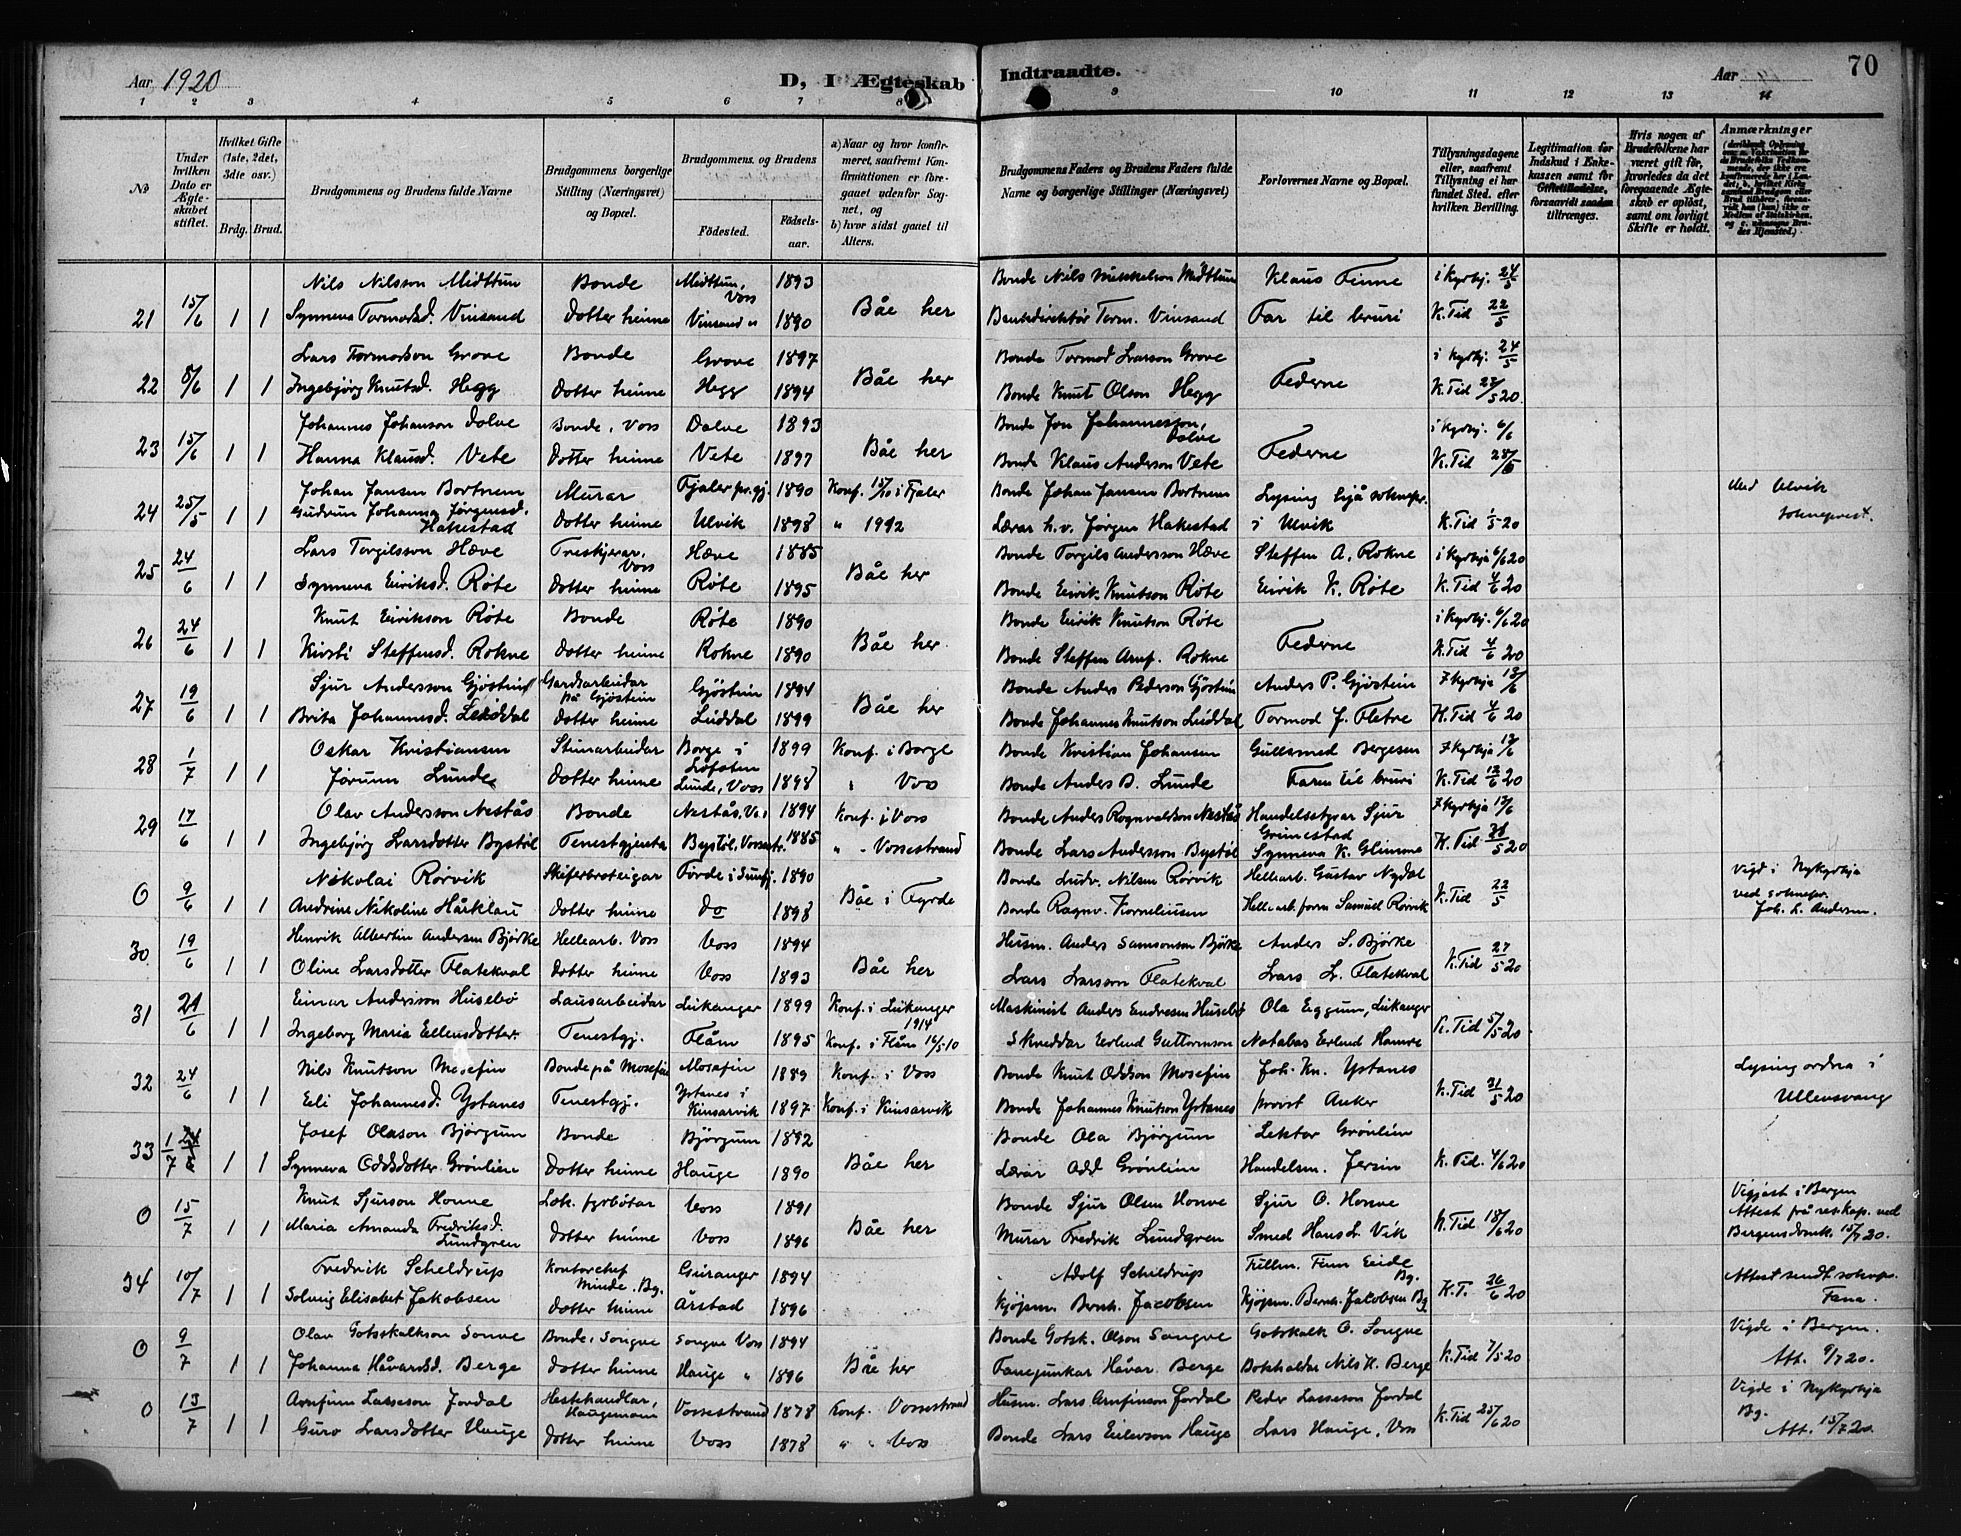 Aar 1920
D, I Ægteskab Indtraadte.
Aar
70
1 2 3 4 5 6 7 8 9 10 11 12 13 14
No
Under hvilken Dato er Ægteskabet stiftet.
Hvilket Gifte (1ste, 2det, 3die osv.)
Brdg. Brud.
Brudgommens og Brudens fulde Navne
Brudgommens borgerlige Stilling (Næringsvei) og Bopæl.
Brudgommens og Brudens
Fødested.
Fødselsaar.
a) Naar og hvor konfirmeret, saafremt Konfirmationen er foregaaet udenfor Sognet, og
b) hvor sidst gaaet til Alters.
Brudgommens Faders og Brudens Faders fulde Navne og borgerlige Stillinger (Næringsvei)
Forlovernes Navne og Bopæl.
Tillysningsdagene eller, saafremt Tillysning ei har fundet Sted, efter hvilken Bevilling.
Legitimation for Indskud i Enkekassen samt for Giftetilladelse, forsaavidt saadan tiltrænges.
Hvis nogen af Brudefolkene har været gift før, hvorledes da det foregaaende Ægteskab er opløst, samt om lovligt Skifte er holdt.
Anmærkninger
21 15/6 1 1 Nils Nilsson Midttun Bonde Midttun, Voss 1893 Bonde Nils Mikkelson Midttun Klaus Finne i kyrkj. 24/5
Synneva Tormodsd. Vinsand Dotter heime Vinsand " 1890 Båe her Bankdirektør Torm. Vinsand Far til bruri K.Tid 22/5
22 8/6 1 1 Lars Tormodson Grove Bonde Grove 1897 Bonde Tormod Larson Grove i kyrkj. 24/5
Ingebjörg Knutsd. Hegg Dotter heime Hegg 1894 Båe her Bonde Knut Olson Hegg Federne K.Tid 22/5 20.
23 15/6 1 1 Johannes Johanson Dolve Bonde, Voss Dolve 1893 Bonde Jon Johannesson Dolve i kyrkj. 6/6
Hanna Klausd. Vete Dotter heime Vete 1897 Båe her Bonde Klaus Anderson Vete Federne K.Tid 28/5
24 25/5 1 1 Johan Jansen Bortnem Murar Fjaler pr.gj. 1890 Konf. 15/10 i Fjaler Bonde Johan Jansen Bortnem Lysing hjå soknepr. Med Ulvik sokneprest.
Gudrun Johanna Jørgensd. Hakestad Dotter heime Ulvik 1898 " 1912 Lærar h.v. Jørgen Hakestad i Ulvik K.Tid 1/5 20
25 24/6 1 1 Lars Torgilsson Hæve Treskjerar, Voss Hæve 1885 Bonde Torgils Andersson Hæve Steffen A. Rokne i kyrkja 6/6 20
Synneva Eiriksd. Røte Dotter heime Røte 1895 Båe her Bonde Eirik Knutson Røte Eirik K. Røte K.Tid 4/6 20
26 24/6 1 1 Knut Eirikson Røte Bonde Røte 1890 Bonde Eirik Knutson Røte i kyrkj. 6/6 20
Kirsti Steffensd. Rokne Dotter heime Rokne 1890 Båe her Bonde Steffen Arnf. Rokne Federne K.Tid 4/6 20
27 19/6 1 1 Sjur Andersson Gjøstein Gardsarbeidar på Gjøstein Gjøstein 1894 Bonde Anders Pederson Gjøstein Anders P. Gjøstein I kyrkja 13/6
Brita Johannesd. Liddal Dotter heime Liddal 1899 Båe her Bonde Johannes Knutson Liddal Tormod J. Fletre K.Tid 4/6 20
28 1/7 1 1 Oskar Kristiansen Steinarbeidar Borge i Lofoten 1899 Konf. i Borge Bonde Kristian Johansen Gullsmed Bergesen I kyrkja 13/6
Jorunn Lunde Dotter heime Lunde, Voss 1898 " Voss Bonde Anders B. Lunde Faren til bruri K.Tid 12/6 20
29 17/6 1 1 Olav Anderson Nestås Bonde Nestås, Vo. 1894 Konf. i Voss Bonde Anders Rognvaldson Nestås Handelsstyrar Sjur Grimestad I kyrkja 13/6
Ingebjörg Larsdotter Bystøl Tenestgjenta Bystøl, Vossestr. 1885 " " Vossestrand Bonde Lars Andersson Bystøl Synneva K. Glimme K.Tid 28/5 20
0 9/6 1 1 Nikolai Rørvik Skiferbroteigar Førde i Sunnfj. 1890 Bonde Ludv. Nilsen Rørvik Hellearb. Gustav Nydal K.Tid 22/5 Vigd i Nykyrkja ved sokneprs. Joh. L. Andersen.
Andrine Nikoline Hårklau Dotter heime Do 1898 Båe i Fyrde Bonde Ragnv. Korneliusen Hellearb.form Samuel Rørvik
30. 19/6 1 1 Henrik Albertin Andersen Bjørke Hellearb. Voss Voss 1894 Husm. Anders Samsonson Bjørke Anders S. Bjørke K.Tid 27/5 20
Oline Larsdotter Flatekval Dotter heime Voss 1893 Båe her Lars Larsson Flatekval Lars L. Flatekval
31 24/6 1 1 Einar Andersson Husebø Lausarbeidar Leikanger 1899 Konf. i Leikanger 1914 Maskinist Anders Endresen Husebø Ola Eggum, Leikanger K.Tid 5/5 20
Ingeborg Maria Ellensdotter Tenestgj. Flåm 1895 Konf. i Flåm 16/5 10 Skreddar Erlend Guttormson Notabas Erlend Hamre
32 24/6 1 1 Nils Knutson Mosefin Bonde på Mosefin Mosefin 1889 Konf. i Voss Bonde Knut Oddson Mosefin Joh. Kn. Ystanes K.Tid 31/5 20 Lysing ordna i Ullensvang
Eli Johannesd. Ystanes Tenestgj. Ystanes i Kinsarvik 1897 Konf. i Kinsarvik Bonde Johannes Knutson Ystanes Provst Anker
33 1/7 24/6 1 1 Josef Olason Bjørgum Bonde Bjørgum 1892 Bonde Ola Bjørgum Lektor Grønlien
Synneva Oddsdotter Grønlien Dotter heime Hauge 1890 Båe her Lærar Odd Grønlien Handelsm. Jersin K.Tid. 4/6 20
0 15/7 1 1 Knut Sjurson Honve Lok. fyrbøtar Voss 1891 Bonde Sjur Olsen Honve Sjur O. Honve K.Tid 18/6 20 Vigjast i Bergen Attest på res.kap. ved Bergensdomk. 15/7 20.
Maria Amanda Fredriksd. Lundgren Dotter heime Voss 1896 Båe her Murar Fredrik Lundgren Smed Hans L. Vik
34 10/7 1 1 Fredrik Scheldrup Kontorchef Minde, Bg. Geiranger 1894 Adolf Scheldrup Fullm. Finn Eide Bg. K.T. 26/6 20 Attest sendt sokneps. Fana.
Solveig Elisabet Jakobsen Dotter heime Årstad 1896 Kjøpm. Bernh. Jacobsen Kjøpm. Bernh. Jakobsen Bg
0 9/7 1 1 Olav Gotskalkson Songve Bonde, Songve Songve Voss 1894 Bonde Gotsk. Olson Songve Gotskalk O. Songve K.Tid 7/5 20 Vigde i Bergen. Att. 9/7 20.
Johanna Håvardsd. Berge Dotter heime Hauge " 1896 Båe her Fanejunkar Håvar. Berge Bokhaldar Nils H. Berge
0 13/7 1 1 Arnfinn Lasseson Jordal Hestehandlar, Haugamoen Vossestrand 1878 Konf. Vossestrand Husm. Lars Arnfinson Jordal Peder Lasseson Jordal K.Tid 25/6 20 Vigde i Nykyrkja Bg. Att. 15/7 20.
Guro Larsdotter Hauge Dotter heime Voss 1878 " " Voss Bonde Lars Eilevson Hauge Lars Hauge, Voss